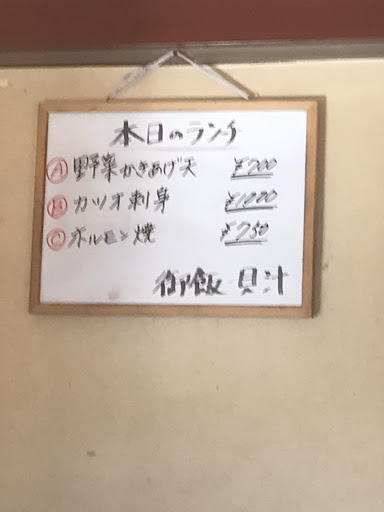 本日のランチ
Ⓐ 野菜かきあげ天 ¥700
Ⓑ カツオ刺身 ¥1000
Ⓒ ホルモン焼 ¥750
御飯 貝汁